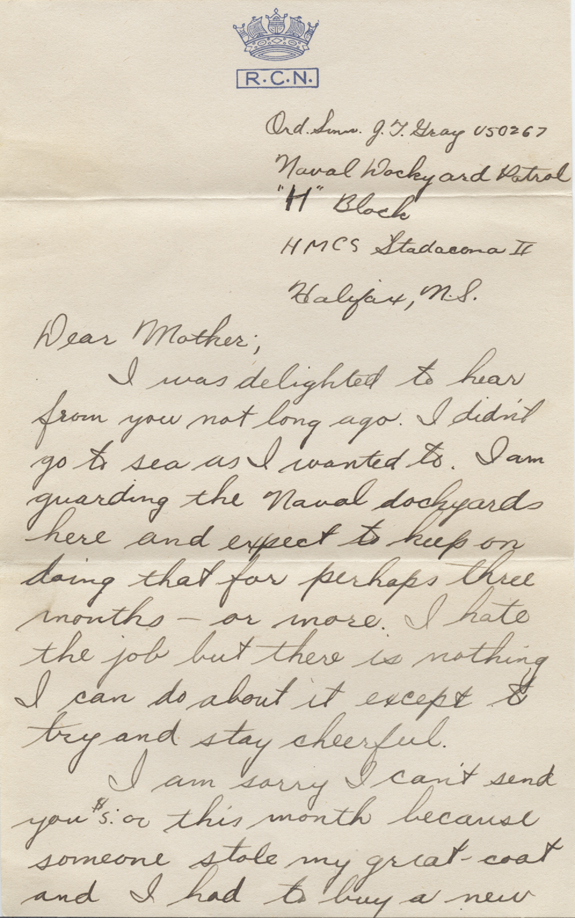 R.C.N.
Ord. Smn. J. T. Gray V50267
Naval Dockyard Patrol
"H" Block
HMCS Stadacona II
Halifax, N.S.
Dear Mother;
I was delighted to hear
from you not long ago. I didn't
go to sea as I wanted to. I am
guarding the Naval dockyards
here and expect to keep on
doing that for perhaps three
months - or more. I hate
the job but there is nothing
I can do about it except to
try and stay cheerful.
I am sorry I can't send
you $5.00 this month because
someone stole my great-coat
and I had to buy a new